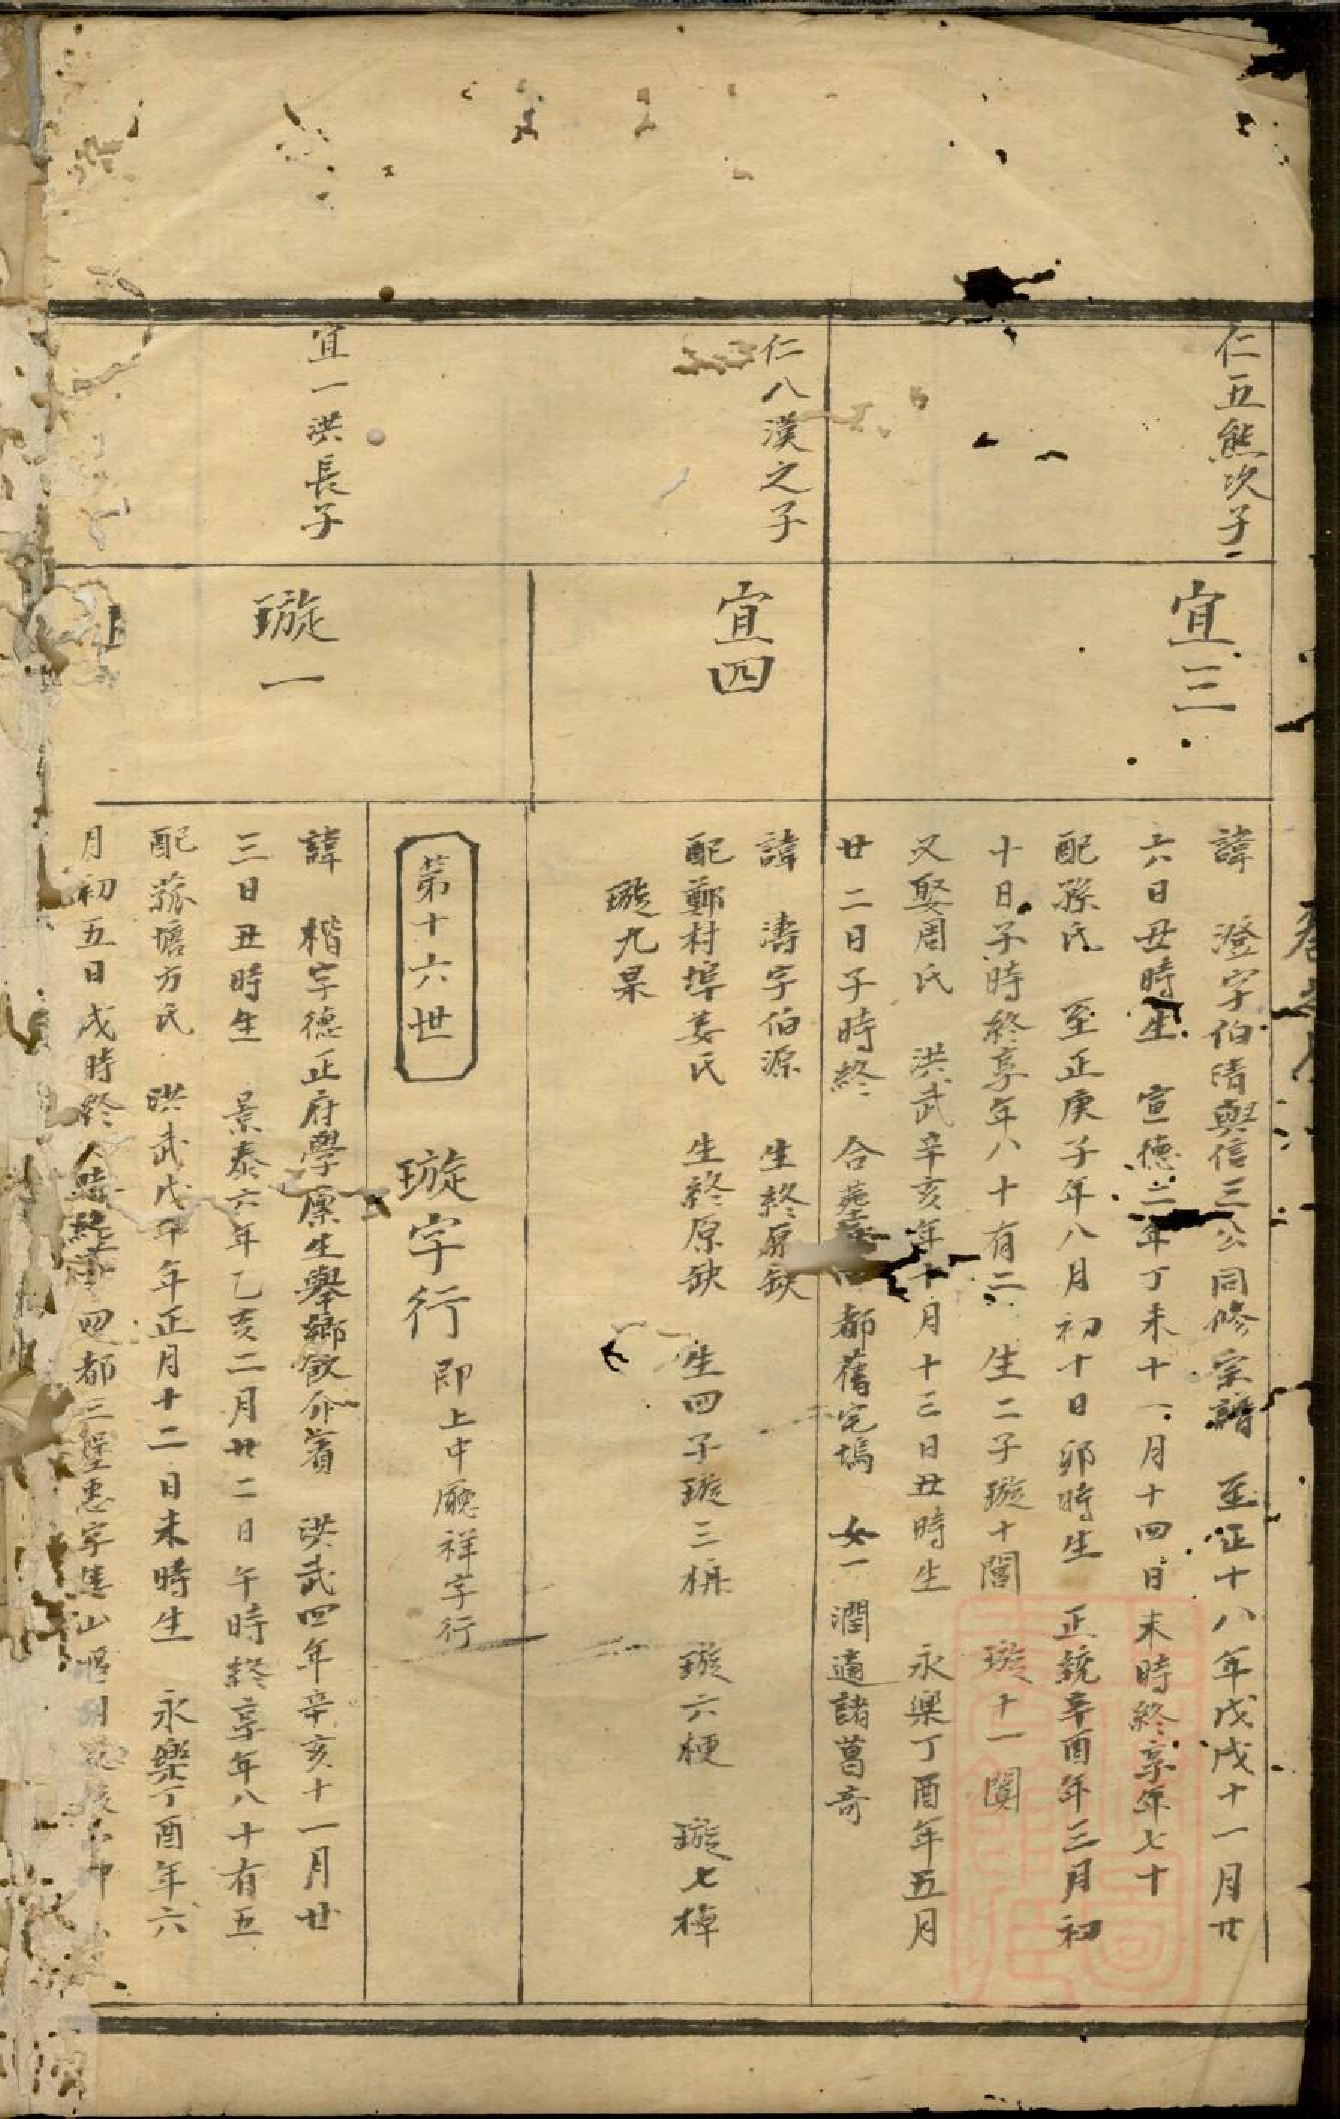 仁五熊次子
宜三
諱　澄字伯清與信三公同修宗譜　至正十八年戊戌十一月廿
六日丑時生　宣德二年丁未十一月十四日未時終享年七十
配孫氏　至正庚子年八月初十日卯時生　正統辛酉年三月初
十日子時終享年八十有二　生二子璇十誾　璇十一闐
又娶周氏　洪武辛亥年十月十三日丑時生　永樂丁酉年五月
廿二日子時終　合墓　都舊宅塢　女一潤適諸葛奇
仁八漢之子
宜四
諱　濤字伯源　生終原缺
配鄭村埠姜氏　生終原缺　生四子璇三栟　璇六梗　璇七棹
璇九杲
第十六世　璇字行　即上中廳祥字行
宜一洪長子
璇一
諱　楷字德正府學廩生舉鄉飲介賓　洪武四年辛亥十一月廿
三日丑時生　景泰六年乙亥二月廿二日午時終享年八十有五
配菰塘方氏　洪武戊午年正月十二日未時生　永樂丁酉年六
月初五日戌時終　四都三堡忠字